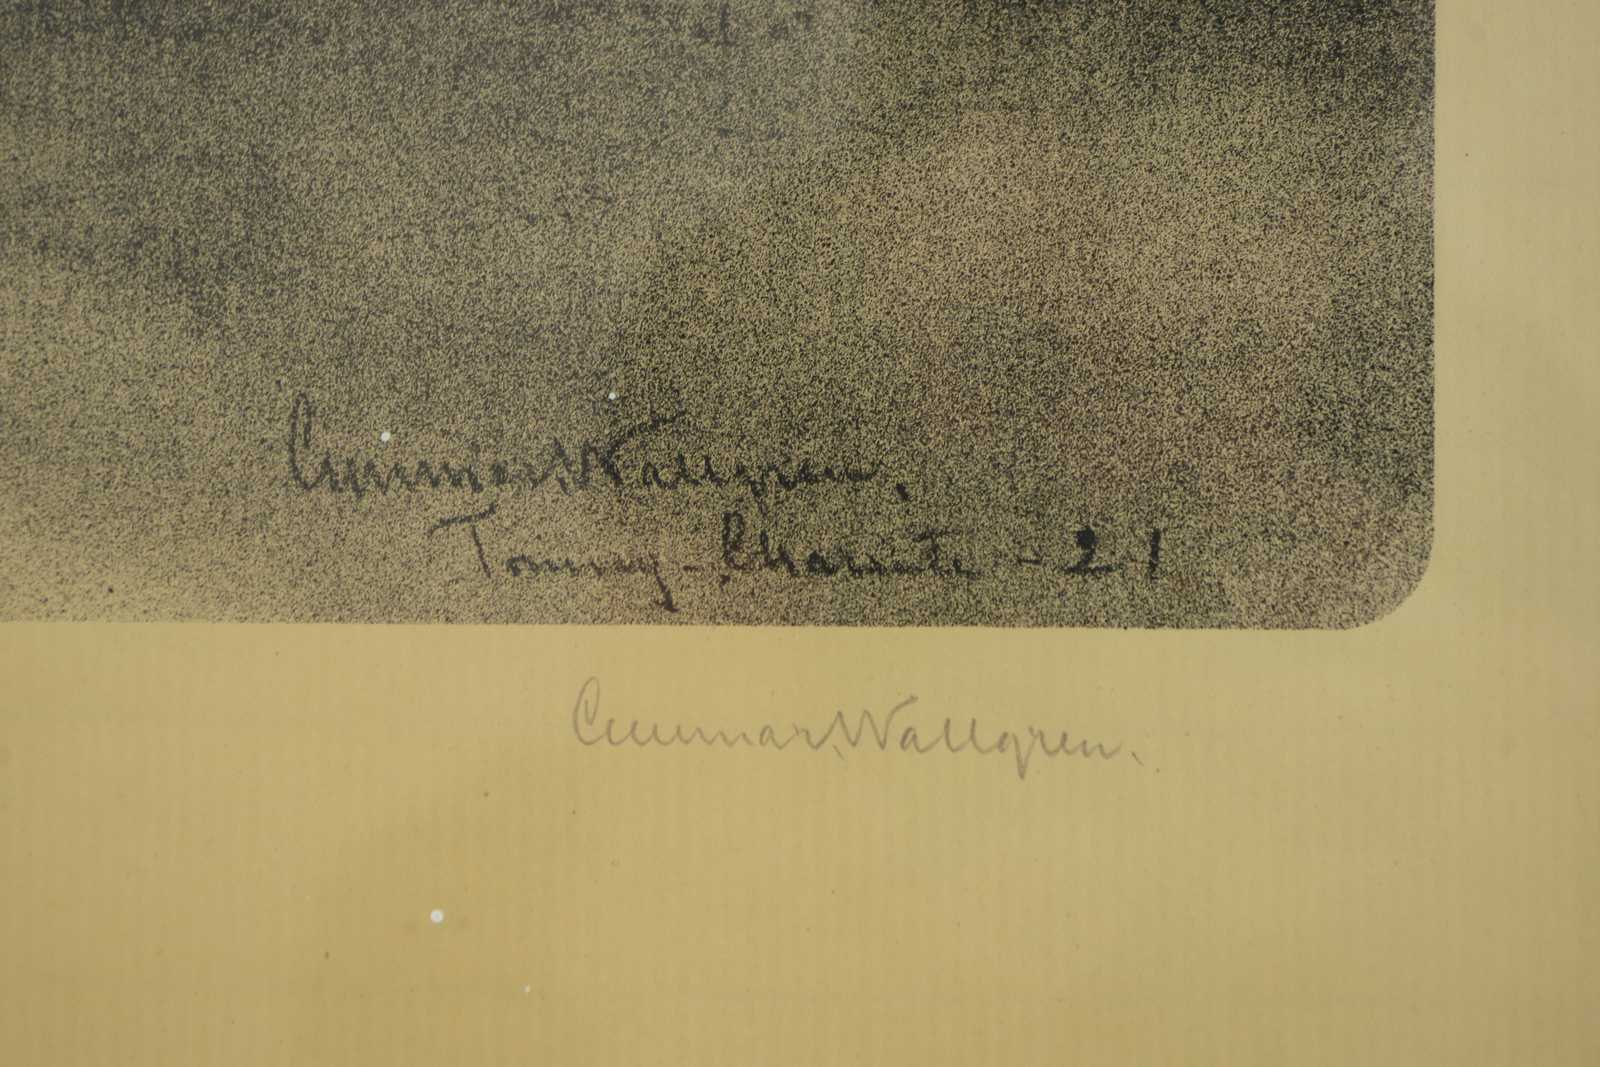 Gunnar Wallgren.
Tonnay-Charente - 21
Gunnar Wallgren.